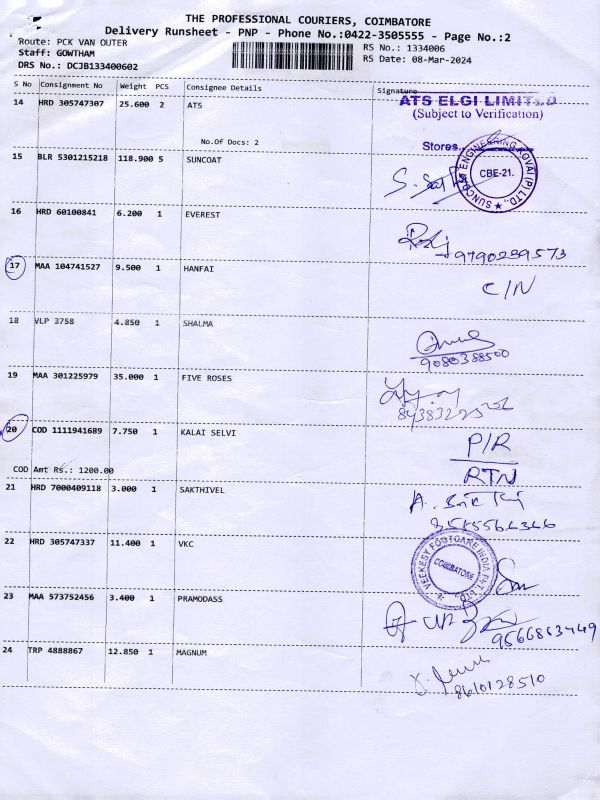 THE PROFESSIONAL COURIERS, COIMBATORE
Delivery Runsheet - PNP - Phone No.:0422-3505555 - Page No.:2
Route: PCK VAN OUTER
RS No.: 1334006
Staff: GOWTHAM
RS Date: 08-Mar-2024
DRS No.: DCJB133400602
S No Consignment No Weight PCS Consignee Details Signature
14 HRD 305747307 25.600 2 ATS
ATS ELGI LIMITED
(Subject to Verification)
No.Of Docs: 2
Stores
15 BLR 5301215218 118.900 5 SUNCOAT
SUNCOAT ENGINEERING KOVAI (P) LTD., ★
CBE-21.
16 HRD 60100841 6.200 1 EVEREST
9790289573
17 MAA 104741527 9.500 1 HANFAI
C/N
18 VLP 3758 4.850 1 SHALMA
9080388500
19 MAA 301225979 35.000 1 FIVE ROSES
20 COD 1111941689 7.750 1 KALAI SELVI
P/R
RTN
COD Amt Rs.: 1200.00
21 HRD 7000409118 3.000 1 SAKTHIVEL
22 HRD 305747337 11.400 1 VKC
VEEKESY FOOTCARE INDIA PVT. LTD
COIMBATORE
23 MAA 573752456 3.400 1 PRAMODASS
9566863449
24 TRP 4888867 12.850 1 MAGNUM
8610128510